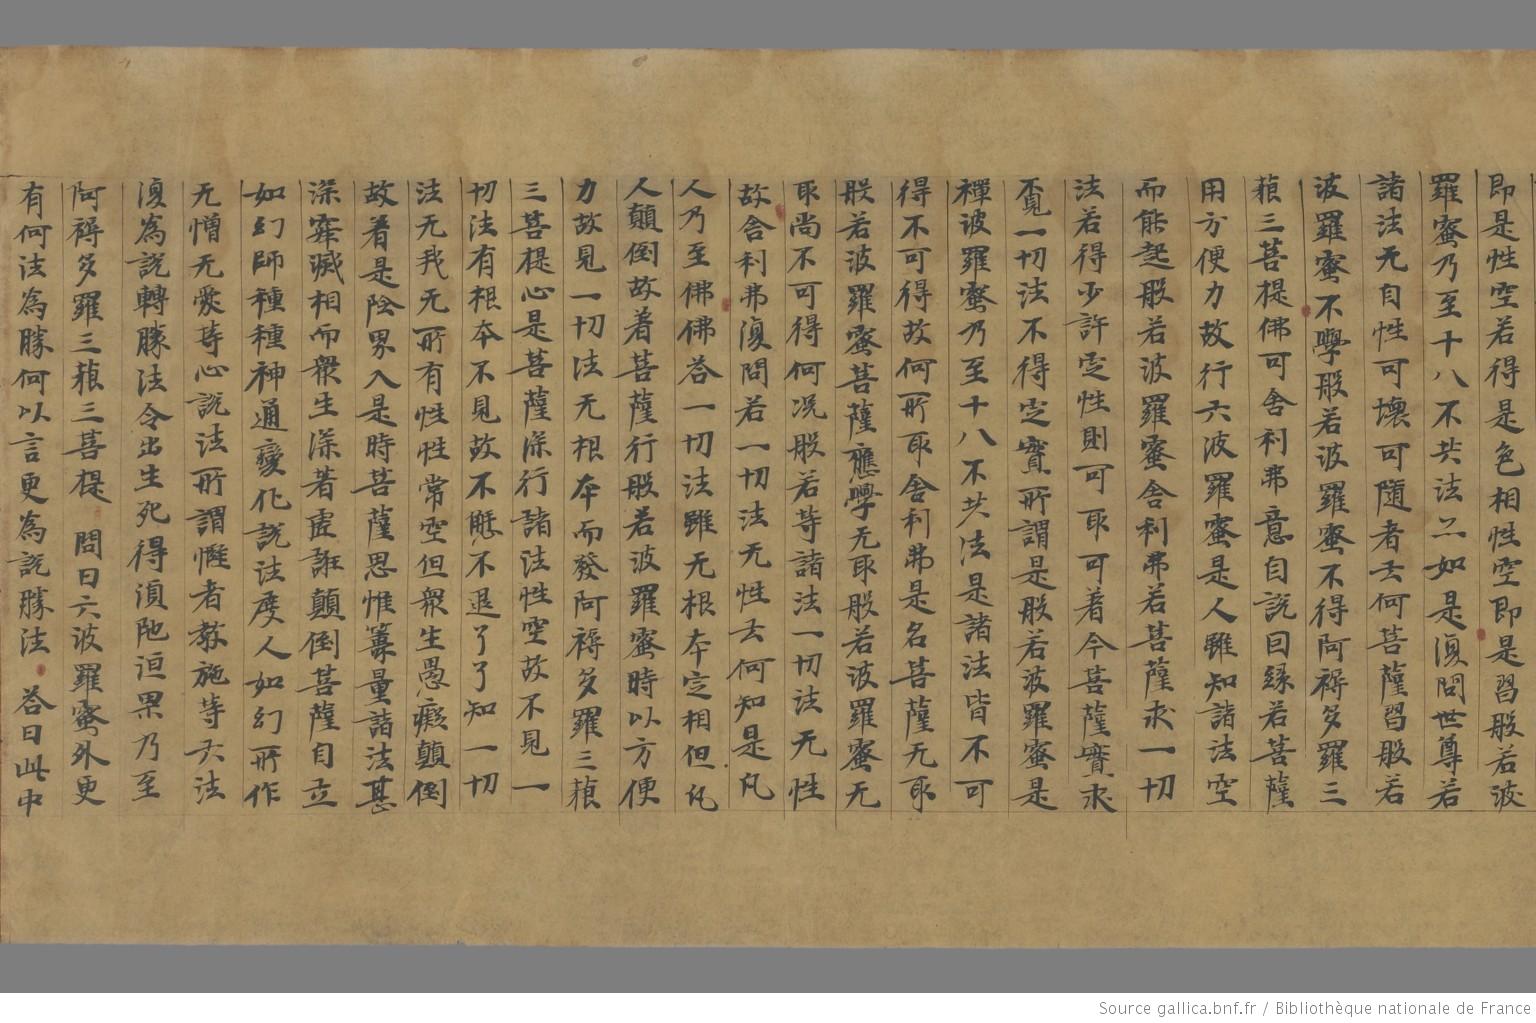 即是性空若得是色相性空即是習般若波
羅蜜乃至十八不共法亦如是復問世尊若
諸法无自性可壞可隨者云何菩薩習般若
波羅蜜不學般若波羅蜜不得阿耨多羅三
藐三菩提佛可舍利弗意自說因緣若菩薩
用方便力故行六波羅蜜是人雖知諸法空
而能起般若波羅蜜舍利弗若菩薩求一切
法若得少許定性則可取可着今菩薩實求
覓一切法不得定實所謂是般若波羅蜜是
禪波羅蜜乃至十八不共法是諸法皆不可
得不可得故何所取舍利弗是名菩薩无取
般若波羅蜜菩薩應學无取般若波羅蜜无
取尚不可得何況般若等諸法一切法无性
故舍利弗復問若一切法无性云何知是凡
人乃至佛佛答一切法雖无根本定相但凡
人顛倒故着菩薩行般若波羅蜜時以方便
力故見一切法无根本而發阿耨多羅三藐
三菩提心是菩薩深行諸法性空故不見一
切法有根本不見故不懈不退了了知一切
法无我无所有性性常空但眾生愚癡顛倒
故着是陰界入是時菩薩思惟籌量諸法甚
深寂滅相而眾生深著虛誑顛倒菩薩自立
如幻師種種神通變化說法度人如幻所作
无憎无愛等心說法所謂慳者教施等六法
復為說轉勝法令出生死得須陁洹果乃至
阿耨多羅三藐三菩提 問曰六波羅蜜外更
有何法為勝何以言更為說勝法 答曰此中